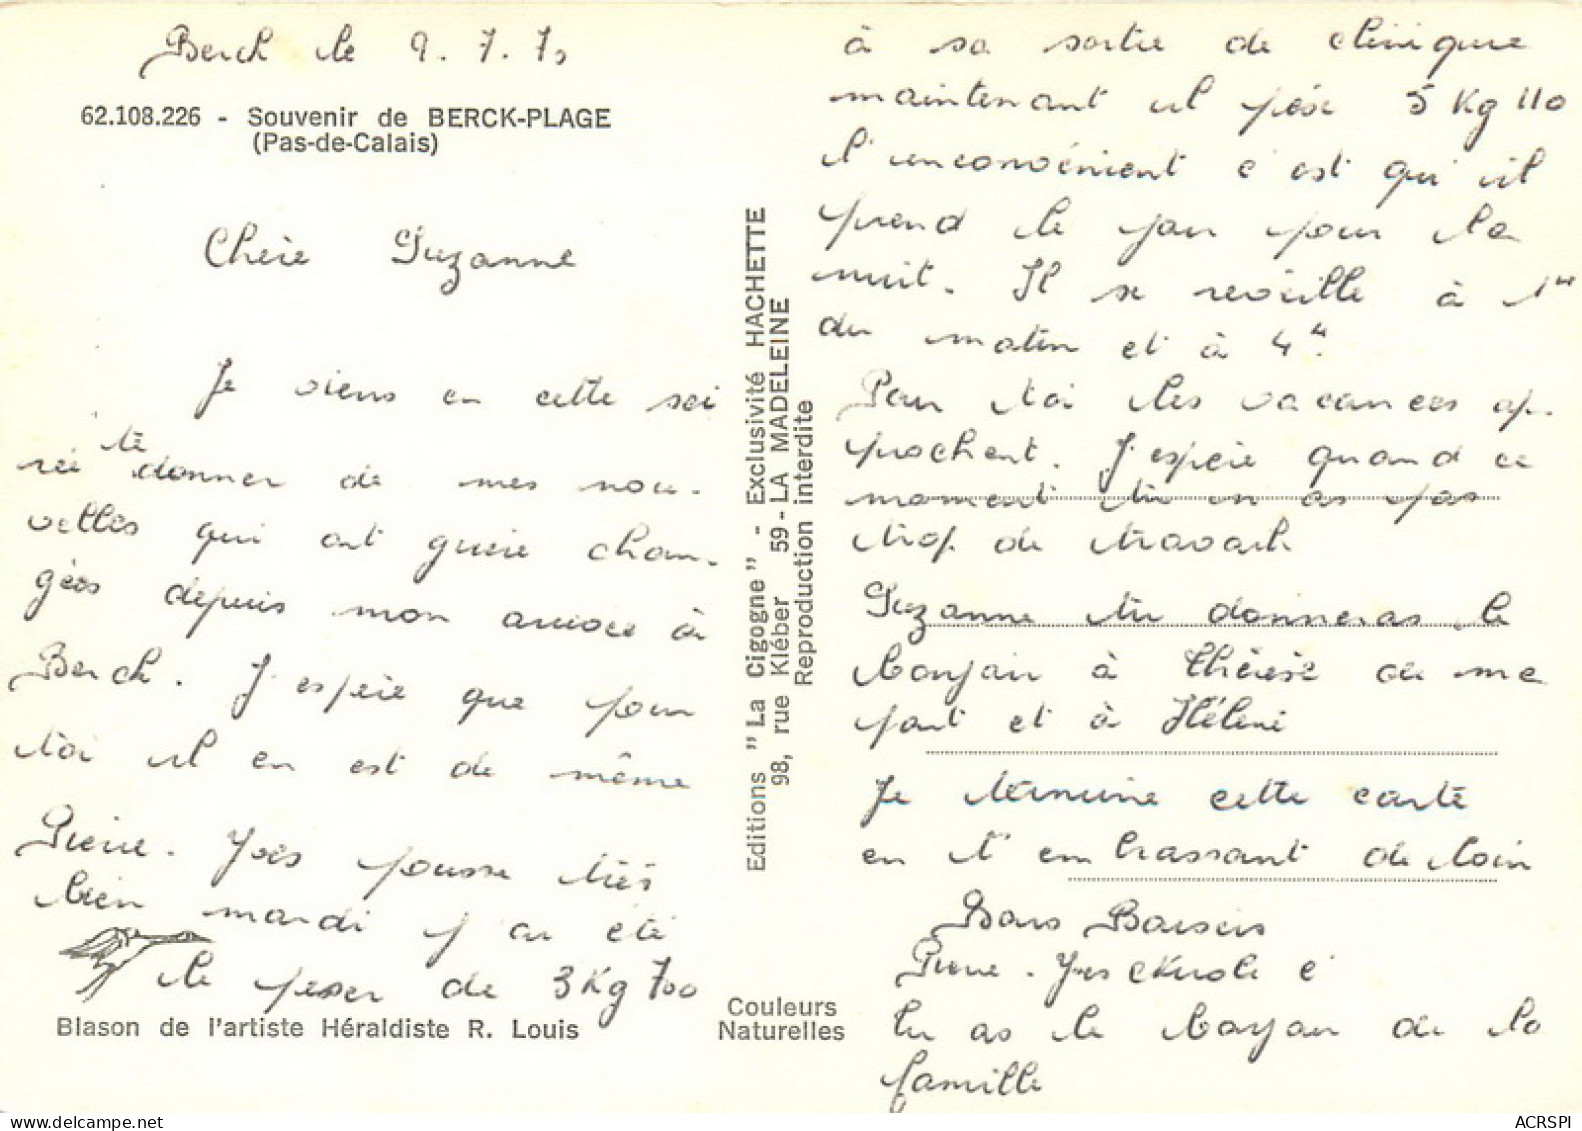 Berck le 9.7.7
62.108.226 - Souvenir de BERCK-PLAGE
(Pas-de-Calais)
Chère Suzanne
Je viens en cette soi
rée te donner de mes nou-
velles qui ont guère chan-
gées depuis mon arrivée à
Berck. J'espère que pour
toi il en est de même
Pierre. Yves pousse très
bien mardi j'ai été
le peser de 3Kg 700
Blason de l'artiste Héraldiste R. Louis
Editions "La Cigogne" - Exclusivité HACHETTE
98, rue Kléber 59 - LA MADELEINE
Reproduction interdite
Couleurs
Naturelles
à sa sortie de clinique
maintenant il pèse 5 Kg 110
l'inconvénient c'est qui il
prend le jour pour la
nuit. Il se réveille à 1H
du matin et à 4H.
Pour toi les vacances ap-
prochent. J'espère quand ce
moment tu en as pas
trop de travail
Suzanne tu donneras le
bonjour à Thérèse de ma
part et à Hélène
Je termine cette carte
en t'embrassant de loin
Bons Baisers
Pierre. Yves
tu as le bonjour de la
famille
ACRSPI